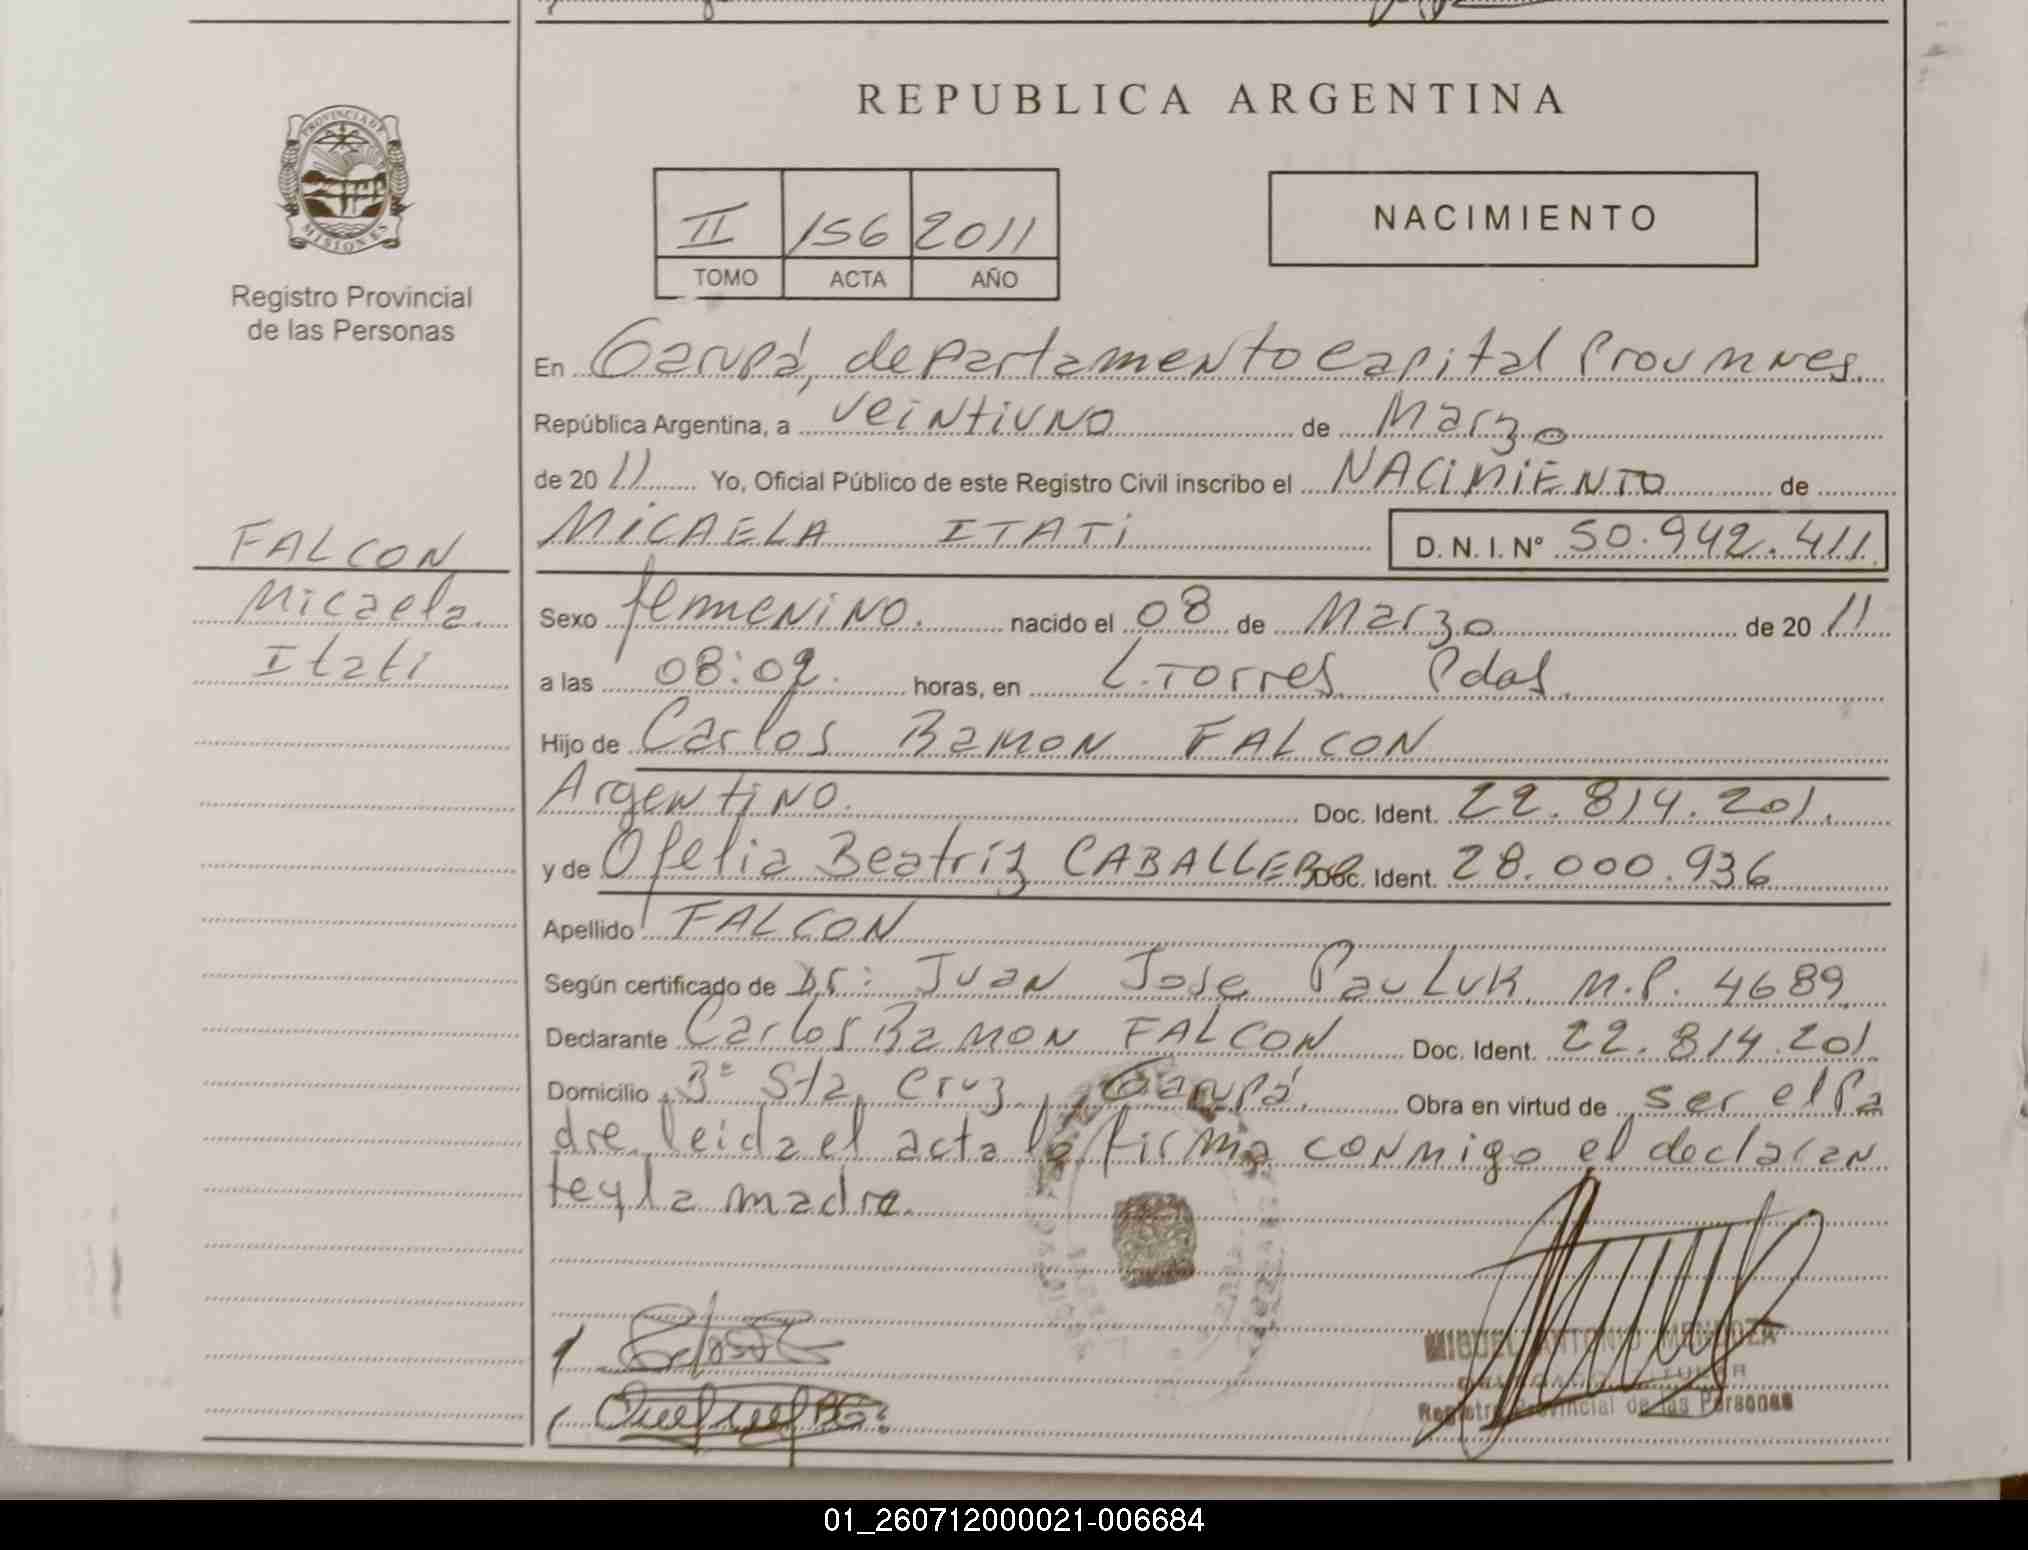 PROVINCIA DE
MISIONES
Registro Provincial
de las Personas
REPUBLICA ARGENTINA
II 156 2011
TOMO ACTA AÑO
NACIMIENTO
En Garupá, departamento capital Prov mnes.
República Argentina, a veintiuno de Marzo
de 20 11 Yo, Oficial Público de este Registro Civil inscribo el NACIMIENTO de
MICAELA ITATI D. N. I. Nº 50.942.411
FALCON
Micaela
Itati
Sexo femenino. nacido el 08 de Marzo de 20 11
a las 08:02. horas, en L. Torres Pdas.
Hijo de Carlos Ramon FALCON
Argentino. Doc. Ident. 22.814.201.
y de Ofelia Beatriz CABALLERO Doc. Ident. 28.000.936
Apellido FALCON
Según certificado de Dr: Juan Jose PauLuk M.P. 4689
Declarante Carlos Ramon FALCON Doc. Ident. 22.814.201
Domicilio Bº Sta. Cruz. Garupá. Obra en virtud de ser el Pa
dre leida el acta la firma conmigo el declaran
te y la madre.
MIGUEL ANTONIO MENDOZA
DELEGADO TITULAR
Registro Provincial de las Personas
01_260712000021-006684